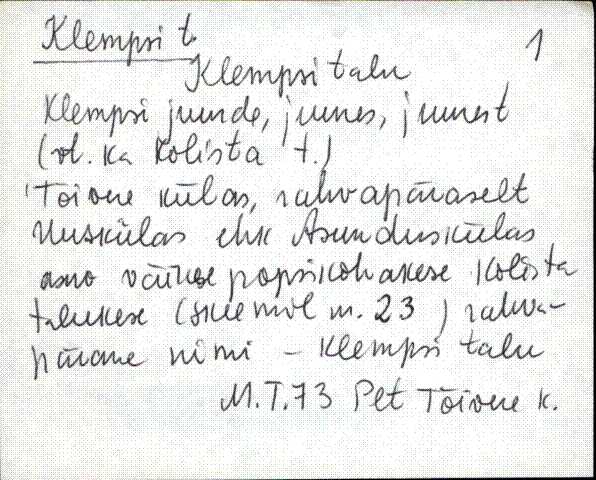 Klempsi t.
1
Klempsi talu
Klempsi juurde, juures, juurest
(vt. ka Kolista t.)
Tõivere külas, rahvapäraselt
Uuskülas ehk Asunduskülas
asuv väikese popsikohakese Kolista
talukese (skeemil nr. 23) rahva-
pärane nimi – Klempsi talu
M.T.73 Plt Tõivere k.